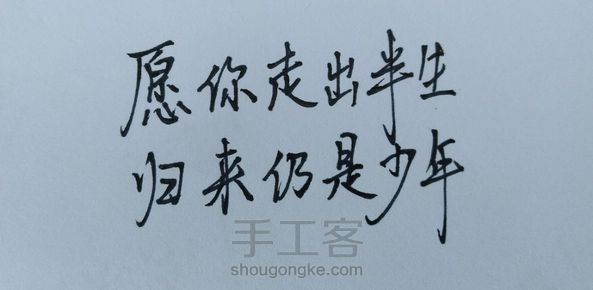 愿你走出半生
归来仍是少年
手工客
shougongke.com